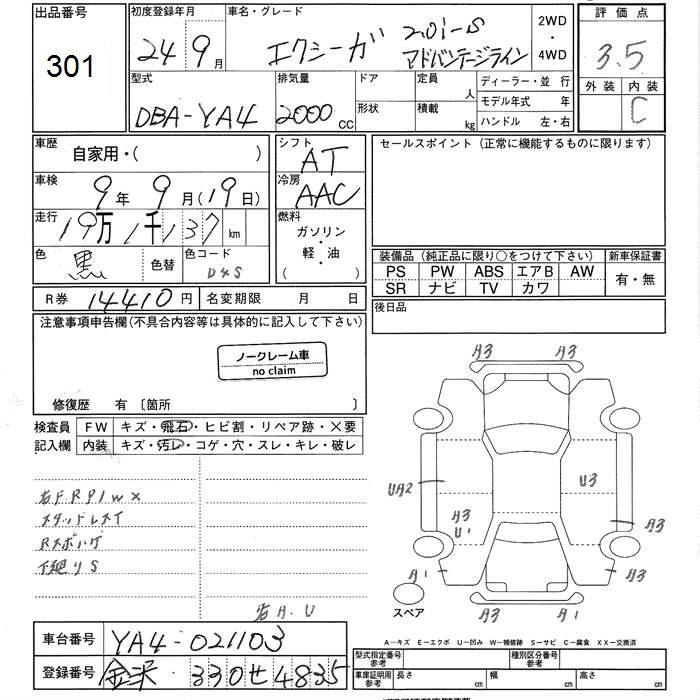 出品番号
301
初度登録年月
24 9 月
車名・グレード
エクシーガ 2.0i-S
アドバンテージライン
2WD
・
4WD
評価点
3.5
外装 内装
C
型式
DBA-YA4
排気量
2000 cc
ドア
形状
定員
人
積載
kg
ディーラー・並行
モデル年式 年
ハンドル 左・右
車歴
自家用・( )
車検
9 年 9 月(19日)
走行
19万1千137 km
色
黒 色替
色コード
D4S
シフト
AT
冷房
AAC
燃料
ガソリン
・
軽・油
( )
R券 14410 円
名変期限 月 日
セールスポイント(正常に機能するものに限ります)
装備品(純正品に限り○をつけて下さい)
PS PW ABS エアB AW
SR ナビ TV カワ
新車保証書
有・無
後日品
注意事項申告欄(不具合内容等は具体的に記入して下さい)
ノークレーム車
no claim
修復歴 有〔箇所 〕
検査員
記入欄
FW キズ・飛石・ヒビ割・リペア跡・×要
内装 キズ・汚レ・コゲ・穴・スレ・キレ・破レ
右FRP1W×
スタッドレスイ
Rスポハゲ
下廻りS
右A.U
A3 A3
UA2
U3
A3
U1
A3
A1
A3
A3 A1
スペア
A-キズ E-エクボ U-凹み W-補修跡 S-サビ C-腐食 XX-交換済
車台番号 YA4-021103
登録番号 金沢 330 せ 4835
型式指定番号
参考
種別区分番号
参考
車庫証明用
参考
長さ cm
幅 cm
高さ cm